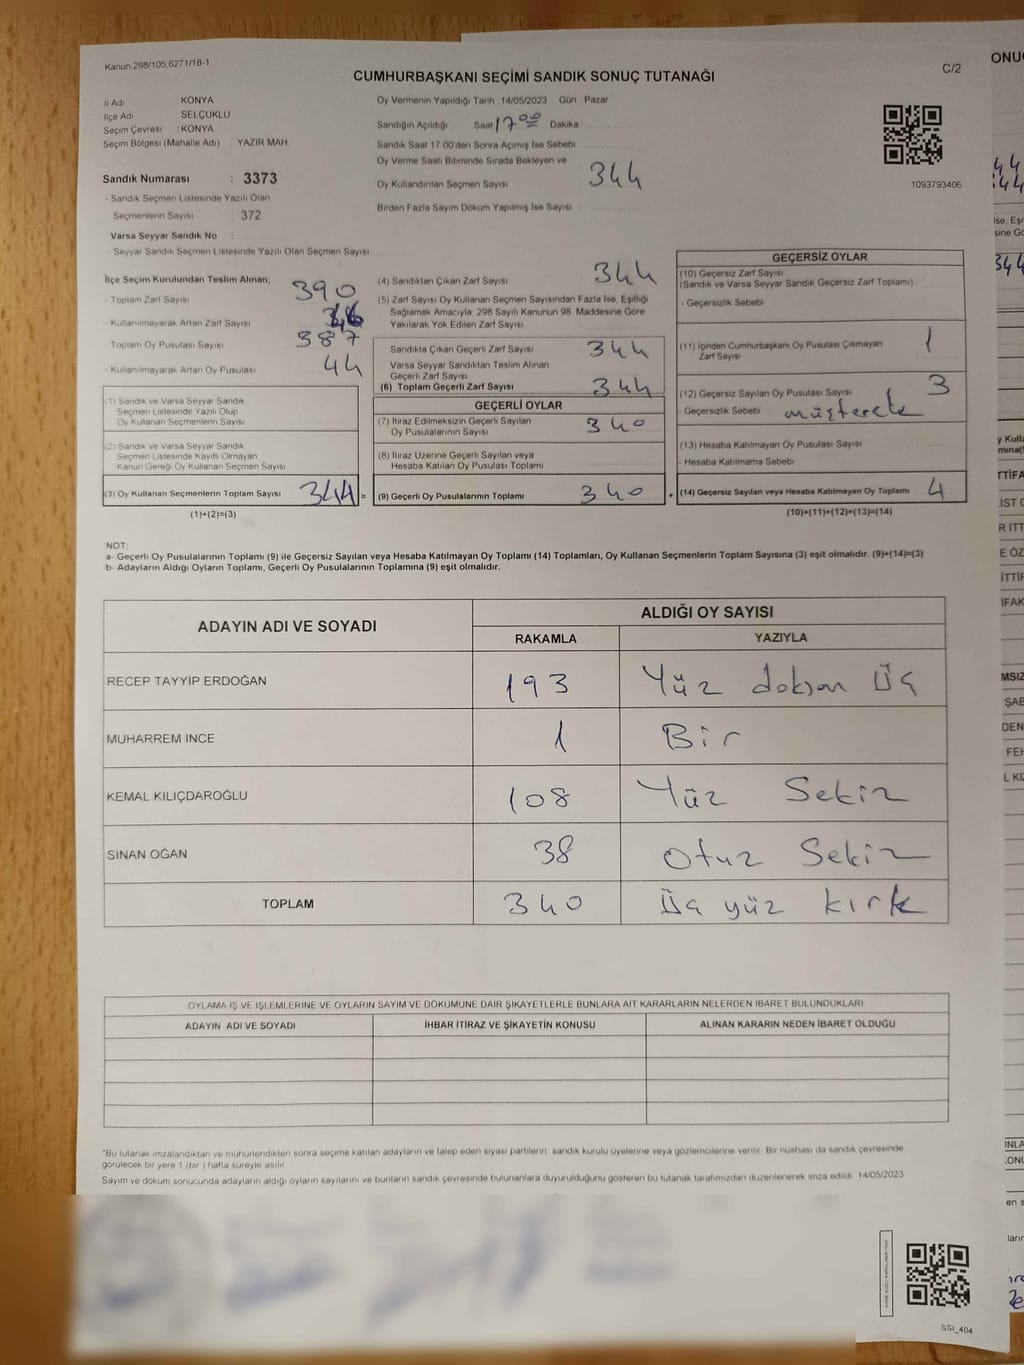 Kanun 298/105;6271/18-1
CUMHURBAŞKANI SEÇİMİ SANDIK SONUÇ TUTANAĞI
C/2
İl Adı KONYA
İlçe Adı SELÇUKLU
Seçim Çevresi : KONYA
Seçim Bölgesi (Mahalle Adı) : YAZIR MAH.
Sandık Numarası : 3373
- Sandık Seçmen Listesinde Yazılı Olan
Seçmenlerin Sayısı : 372
Varsa Seyyar Sandık No :
- Seyyar Sandık Seçmen Listesinde Yazılı Olan Seçmen Sayısı
Oy Vermenin Yapıldığı Tarih : 14/05/2023 Gün : Pazar
Sandığın Açıldığı Saat 17 00 Dakika
Sandık Saat 17:00'den Sonra Açımış İse Sebebi
Oy Verme Saati Bitiminde Sırada Bekleyen ve
Oy Kullandırılan Seçmen Sayısı 344
Birden Fazla Sayım Döküm Yapılmış İse Sayısı
1093793406
İlçe Seçim Kurulundan Teslim Alınan;
- Toplam Zarf Sayısı 390
- Kullanılmayarak Artan Zarf Sayısı
- Toplam Oy Pusulası Sayısı 387
- Kullanılmayarak Artan Oy Pusulası 44
(1) Sandık ve Varsa Seyyar Sandık
Seçmen Listesinde Yazılı Olup
Oy Kullanan Seçmenlerin Sayısı
(2) Sandık ve Varsa Seyyar Sandık
Seçmen Listesinde Kayıtlı Olmayan
Kanun Gereği Oy Kullanan Seçmen Sayısı
(3) Oy Kullanan Seçmenlerin Toplam Sayısı 344 =
(1)+(2)=(3)
(4) Sandıktan Çıkan Zarf Sayısı 344
(5) Zarf Sayısı Oy Kullanan Seçmen Sayısından Fazla İse, Eşitliği
Sağlamak Amacıyla, 298 Sayılı Kanunun 98. Maddesine Göre
Yakılarak Yok Edilen Zarf Sayısı
Sandıkta Çıkan Geçerli Zarf Sayısı 344
Varsa Seyyar Sandıktan Teslim Alınan
Geçerli Zarf Sayısı
(6) Toplam Geçerli Zarf Sayısı 344
GEÇERLİ OYLAR
(7) İtiraz Edilmeksizin Geçerli Sayılan
Oy Pusulalarının Sayısı 340
(8) İtiraz Üzerine Geçerli Sayılan veya
Hesaba Katılan Oy Pusulası Toplamı
(9) Geçerli Oy Pusulalarının Toplamı 340 +
GEÇERSİZ OYLAR
(10) Geçersiz Zarf Sayısı
(Sandık ve Varsa Seyyar Sandık Geçersiz Zarf Toplamı)
- Geçersizlik Sebebi
(11) İçinden Cumhurbaşkanı Oy Pusulası Çıkmayan
Zarf Sayısı 1
(12) Geçersiz Sayılan Oy Pusulası Sayısı 3
- Geçersizlik Sebebi müşterek
(13) Hesaba Katılmayan Oy Pusulası Sayısı
- Hesaba Katılmama Sebebi
(14) Geçersiz Sayılan veya Hesaba Katılmayan Oy Toplamı 4
(10)+(11)+(12)+(13)=(14)
NOT:
a- Geçerli Oy Pusulalarının Toplamı (9) ile Geçersiz Sayılan veya Hesaba Katılmayan Oy Toplamı (14) Toplamları, Oy Kullanan Seçmenlerin Toplam Sayısına (3) eşit olmalıdır. (9)+(14)=(3)
b- Adayların Aldığı Oyların Toplamı, Geçerli Oy Pusulalarının Toplamına (9) eşit olmalıdır.
ADAYIN ADI VE SOYADI ALDIĞI OY SAYISI
RAKAMLA YAZIYLA
RECEP TAYYİP ERDOĞAN 193 Yüz doksan Üç
MUHARREM İNCE 1 Bir
KEMAL KILIÇDAROĞLU 108 Yüz Sekiz
SİNAN OĞAN 38 Otuz Sekiz
TOPLAM 340 Üç yüz kırk
OYLAMA İŞ VE İŞLEMLERİNE VE OYLARIN SAYIM VE DÖKÜMÜNE DAİR ŞİKAYETLERLE BUNLARA AİT KARARLARIN NELERDEN İBARET BULUNDUKLARI
ADAYIN ADI VE SOYADI İHBAR İTİRAZ VE ŞİKAYETİN KONUSU ALINAN KARARIN NEDEN İBARET OLDUĞU
*Bu tutanak imzalandıktan ve mühürlendikten sonra seçime katılan adayların ve talep eden siyasi partilerin sandık kurulu üyelerine veya gözlemcilerine verilir. Bir nüshası da sandık çevresinde
görülecek bir yere 1 (bir ) hafta süreyle asılır.
Sayım ve döküm sonucunda adayların aldığı oyların sayılarını ve bunların sandık çevresinde bulunanlara duyurulduğunu gösteren bu tutanak tarafımızdan düzenlenerek imza edildi. 14/05/2023
SSI_404